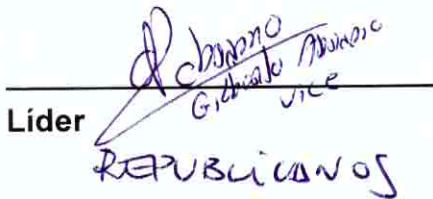 Gilberto Abramo
VICE
Líder
REPUBLICANOS